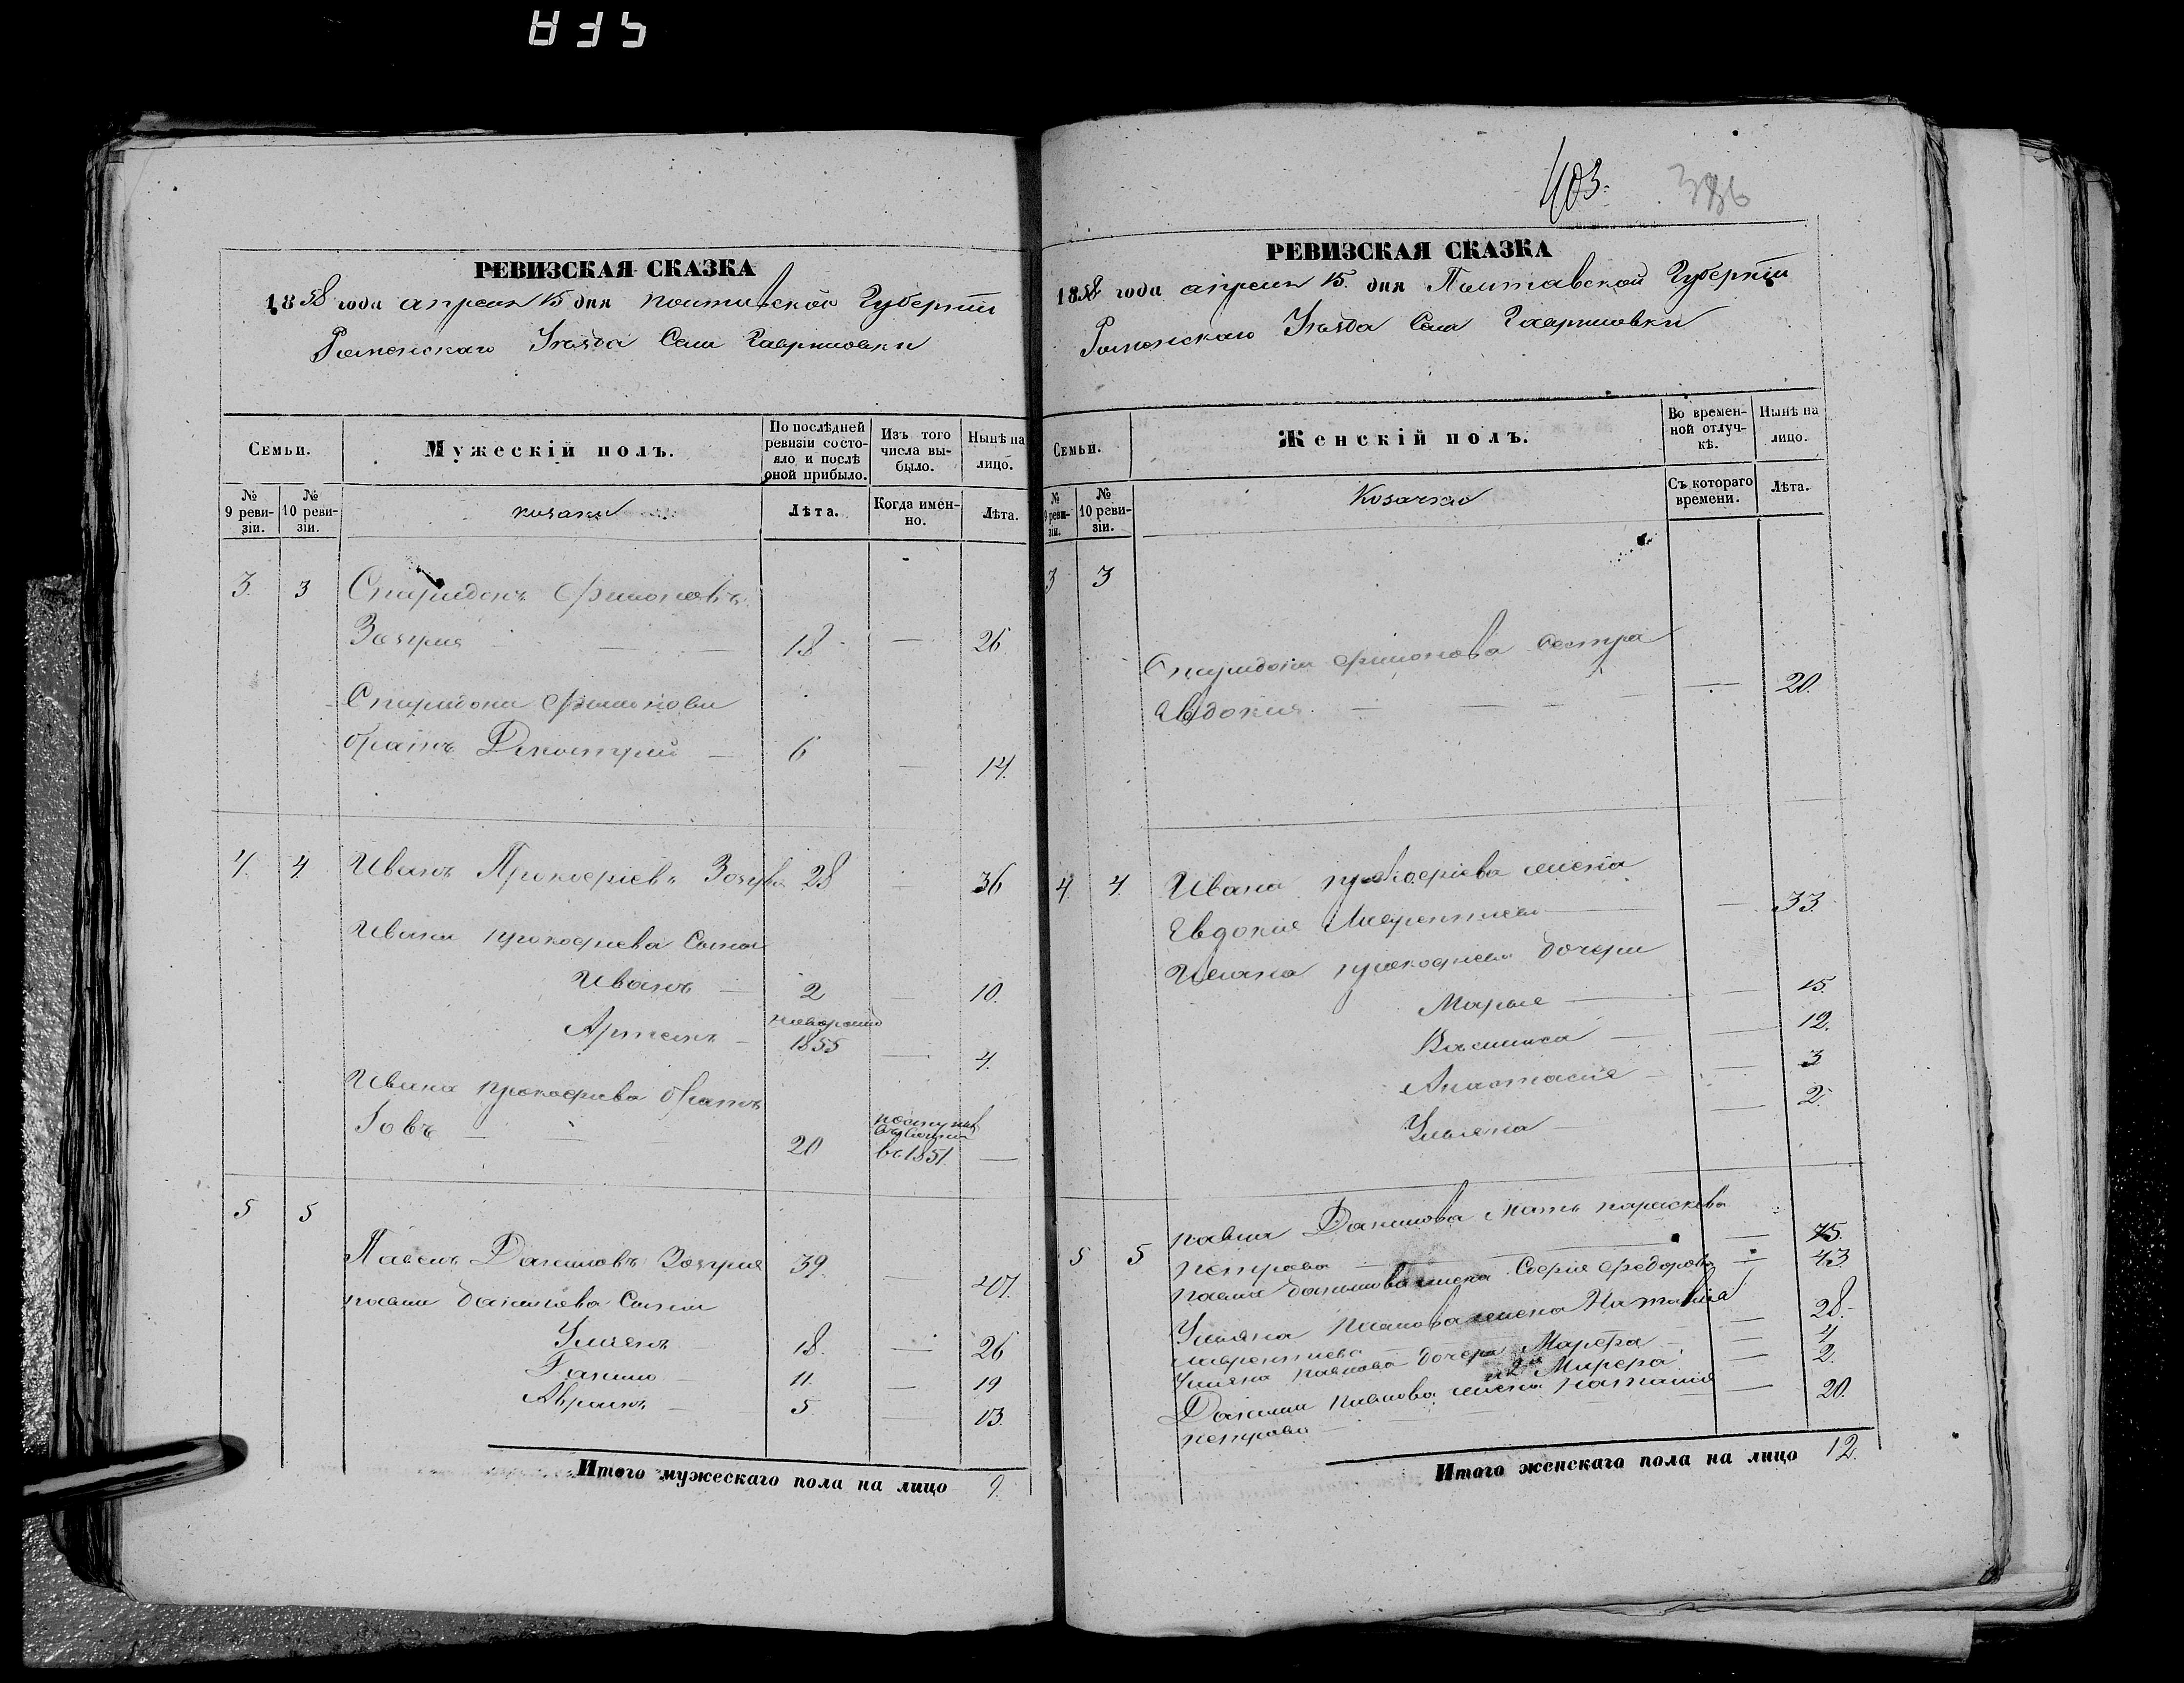 403.
386
РЕВИЗСКАЯ СКАЗКА
1858 года апреля 15 дня Полтавской Губернiи
Роменскаго Уезда Села Гавриловки
Семьи.
Мужескiй полъ.
По послѣдней ревизiи состояло и послѣ оной прибыло.
Изъ того числа выбыло.
Нынѣ на лицо.
№ 9 ревизiи.
№ 10 ревизiи.
козаки
Лѣта.
Когда именно.
Лѣта.
3. 3 Спиридонъ Филоновъ
18 — 26
Спиридона Филонова
братъ Дмитрий — 6 — 14.
4. 4. Иванъ Прокофiевъ 28 — 36
Ивана прокофиева Сыны
Иванъ — 2 — 10.
Артемъ — новорожд 1855 — 4.
Ивана прокофиева братъ
Iовъ — 20 въ 1851. —
5 5
Павелъ Даниловъ 39. — 47.
павла данилова Сыны
Ульянъ 18. — 26
Данило — 11. — 19
Абрамъ — 5 — 13.
Итого мужескаго пола на лицо 9.
РЕВИЗСКАЯ СКАЗКА
1858 года апреля 15. дня Полтавской Губернiи
Роменскаго Уезда Села Гавриловки
Семьи.
Женскiй полъ.
Во временной отлучкѣ.
Нынѣ на лицо.
№ 9 ревизiи.
№ 10 ревизiи.
Козачки
Съ котораго времени.
Лѣта.
3 3
Спиридона филонова сестра
Авдокия — — 20.
4. 4 Ивана прокофiева жена
Евдокия Лаврентиева — — 33.
Ивана прокофиева дочери
Марья — — 15.
Василиса — — 12.
Анастасия — — 3
Ульяна — — 2.
5 5 павла Данилова мать параскева
петрова — — 75.
павла данилова жена Софiя федорова — 43
Ульяна павлова жена Наталiя
лаврентиева — 28.
Ульяна павлова дочери Марфа — — 4
2я Марфа — 2.
Данила павлова жена наталия
петрова — — 20.
Итого женскаго пола на лицо 12.